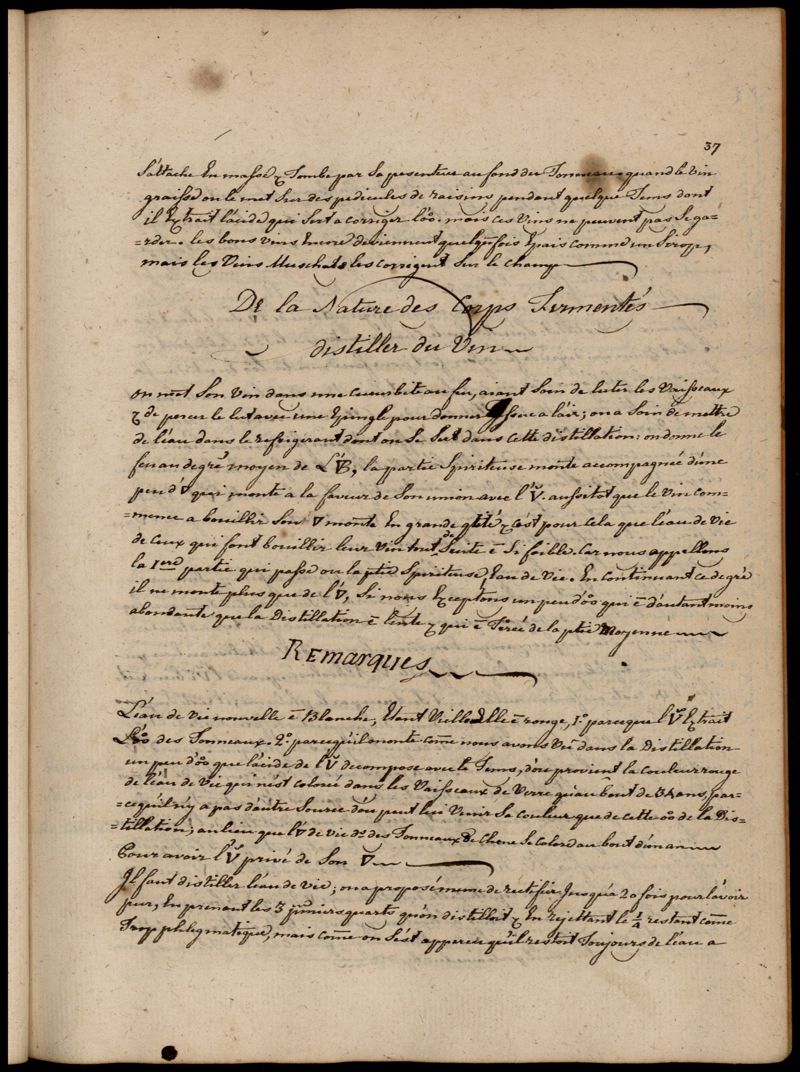 37
s'attache En masse & Tombe par Sa pesenteur au fond du Tonneau, quand le vin
graisse on le met Sur des pedicules de raisins pendant quelque Tems dont
il Extrait l'acide qui Sert a corriger l'oo. mais ces Vins ne peuvent pas Se ga=
=rder. les bons vins Encore deviennent quelqu'fois Epais comme un Sirop,
mais les Vins Muschats les corrigent Sur le Champ
De la Nature des Corps Fermentés
distiller du Vin
on met Son Vin dans une cucurbite au feu, aiant Soin de luter les Vaisseaux
& de percer le lut avec une Epingle pour donner issue a l'air; on a Soin de mettre
de l'eau dans le refrigirant dont on Se Sert dans cette distillation: on donne le
feu au degré moyen de L'🜄B, la partie Spiriteuse monte accompagnée d'une
peu d'🜄 qui monte a la faveur de Son union avec l'🜄. aussitot que le vin com=
=mence a bouillir Son 🜄 monte En grande qtité & c'est pour cela que l'eau de vie
de Ceux qui font bouillir leur Vin tout de Suite ē Si foible. Car nous appellons
la 1ere partie qui passe ou la ptie Spiriteuse, Eau de Vie. En continuant ce degré
il ne monte plus que de l'🜄, Si nous Exceptons un peu d'oo qui ē d'autant moins
abondante que la Distillation ē lente & qui ē Tirée de la ptie Moyenne
Remarques
L'eau de vie nouvelle ē Blanche, Etant Vielle Elle ē rouge, 1.º parceque l'🜄 Extrait
L'oo des Tonneaux. 2.º parcequ'il monte come nous avons Vu dans la Distillation
un peu d'oo que l'acide de l'🜄 decompose avec le Tems, d'ou provient la Couleur rouge
de l'eau de Vie qui n'est colorée dans les Vaisseaux de Verre qu'au bout de ans, par=
=cequ'il n'y a pas d'autre Source d'ou peut lui Venir Sa couleur que de cette oo de la Dis=
=tillation; au lieu que l'🜄 de vie ds des Tonneaux de Chene Se colore au bout d'un an
Pour avoir l'🜄 privé de Son 🜄
Il faut distiller l'eau de Vie; on a proposé meme de rectifier Jusqu'a 20 fois pour l'avoir
pur, En prenant les 3 p͞miers quarts qu'on distilloit & En rejettant le 1/4 restant come
Trop phlegmatique, mais come on S'est apperçu qu'il restoit Toujours de l'eau a